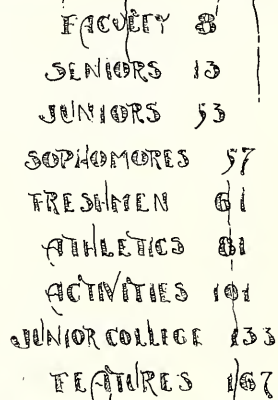 FACULTY 8
SENIORS 13
JUNIORS 53
SOPHOMORES 57
FRESHMEN 61
ATHLETICS 81
ACTIVITIES 101
JUNIOR COLLEGE 133
FEATURES 167